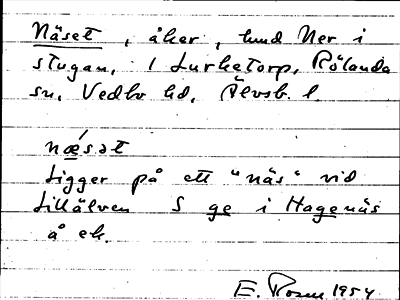 Näset, åker, hund Ner i
stugan, i Lurketorp, Rölanda
sn, Vedbo hd, Älvsb. l.
næ´sət
Ligger på ett "näs" vid
Lillälven S ge i Hagenäs
å ek.
E. Rosen 1954